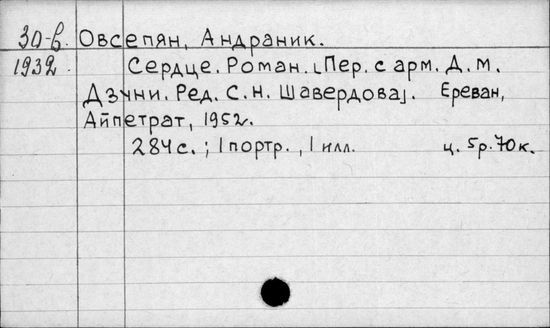 30-в. Овсепян, Андраник.
1932 Сердце. Роман. [Пер. с арм. Д. М.
Дзнуни. Ред. С. Н. Шавердова]. Ереван,
Айпетрат, 1952.
284 с. ; 1 портр. , 1 илл. ц. 5р. 70к.